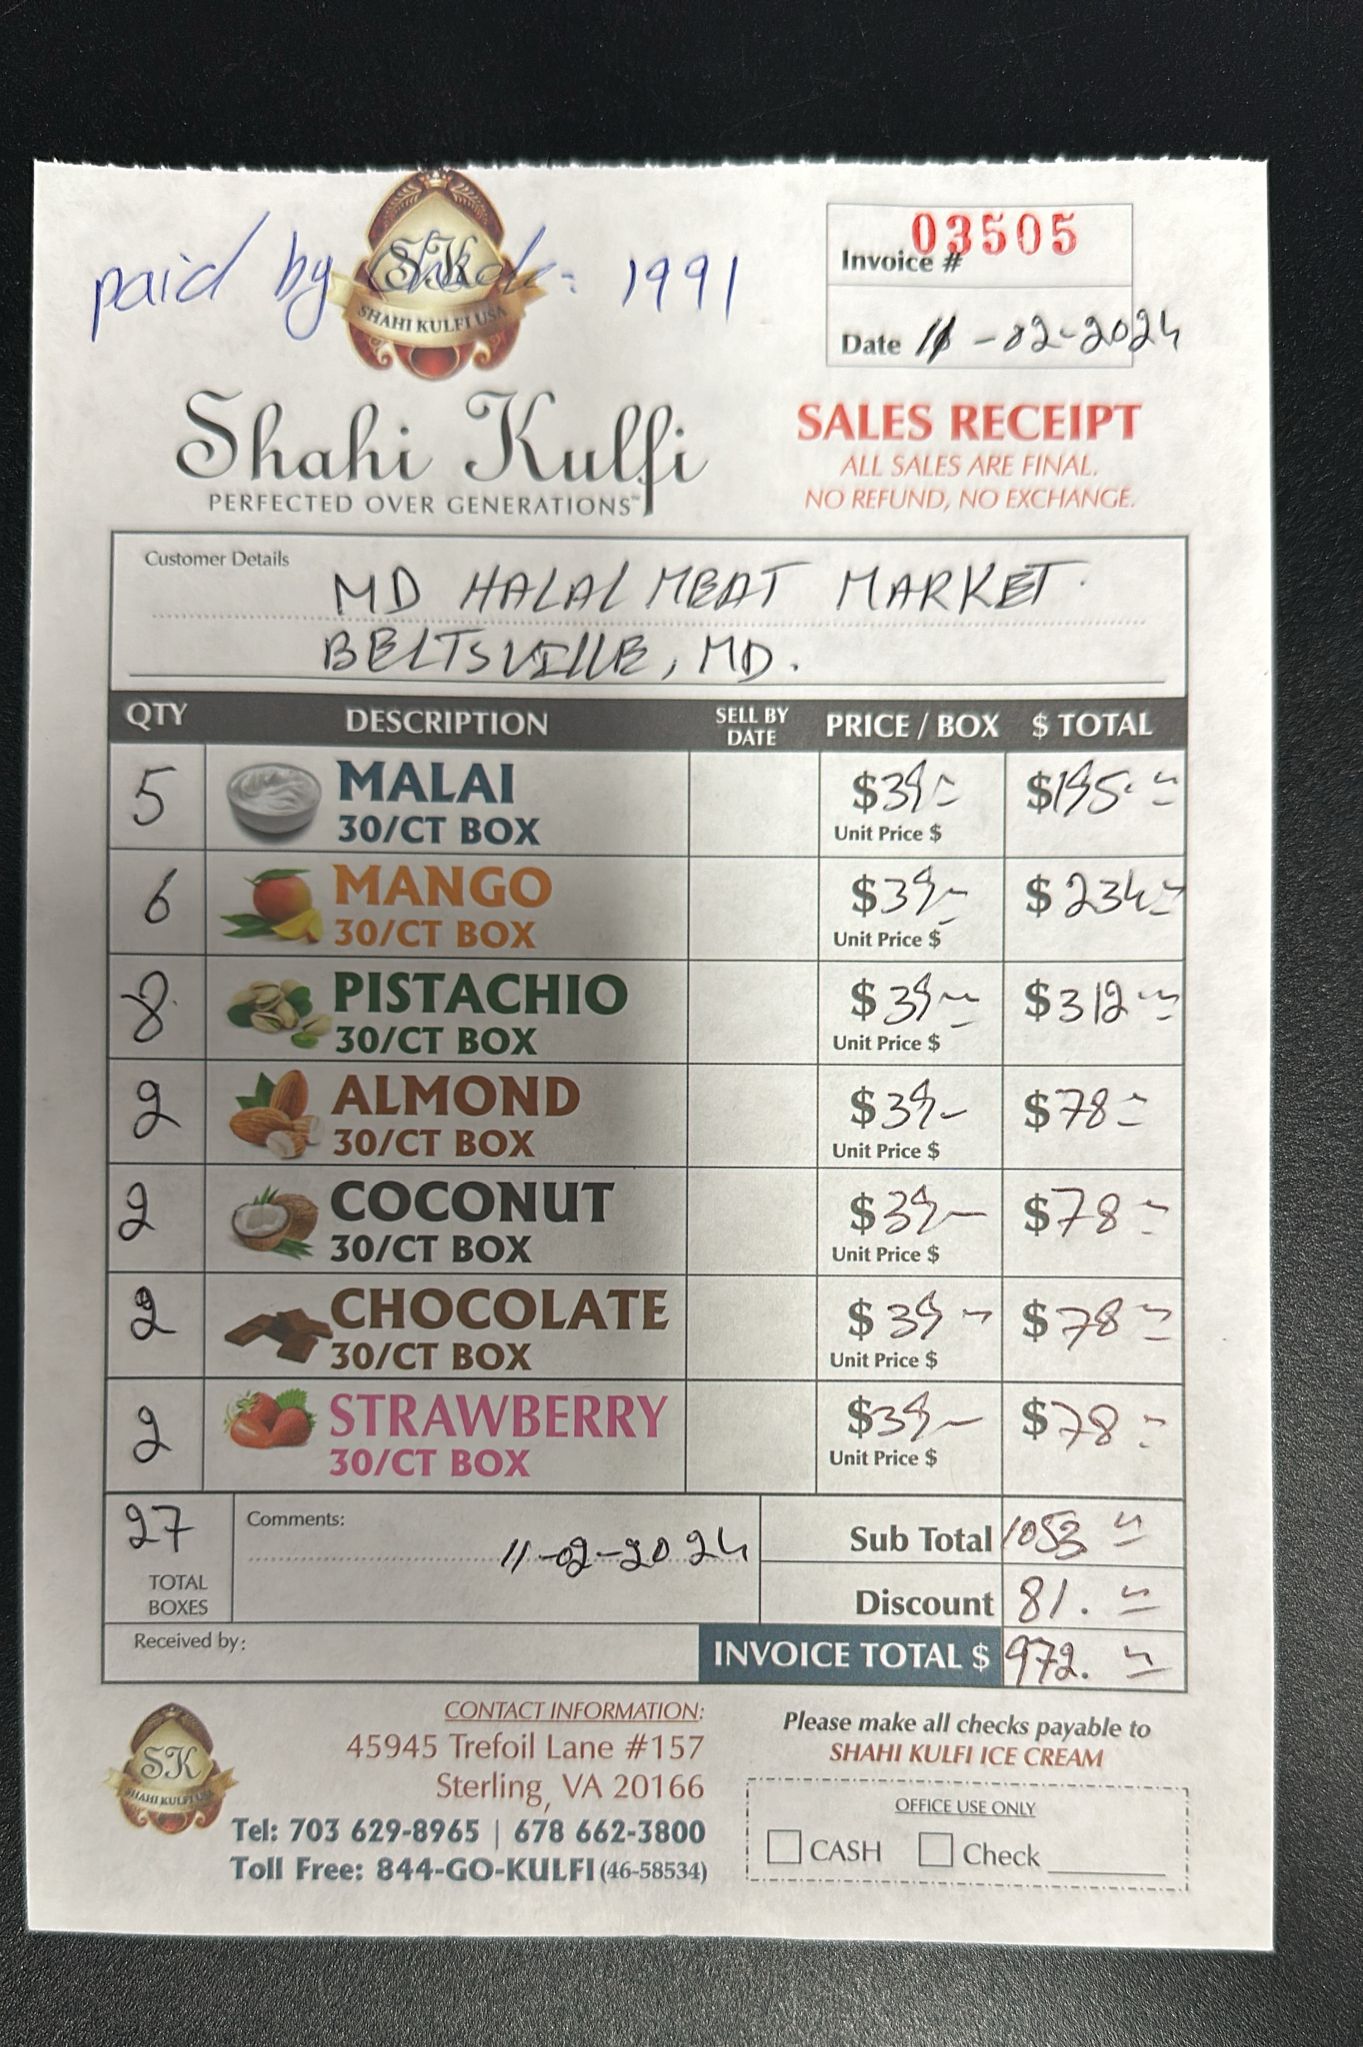 paid by Check: 1991
SK
SHAHI KULFI USA
Invoice # 03505
Date 11-02-2024
Shahi Kulfi
PERFECTED OVER GENERATIONS™
SALES RECEIPT
ALL SALES ARE FINAL.
NO REFUND, NO EXCHANGE.
Customer Details
MD HALAL MEAT MARKET.
BELTSVILLE, MD.
QTY DESCRIPTION SELL BY DATE PRICE / BOX $ TOTAL
5 MALAI $39- $195.=
30/CT BOX Unit Price $
6 MANGO $39- $234=
30/CT BOX Unit Price $
8 PISTACHIO $39= $312=
30/CT BOX Unit Price $
2 ALMOND $39- $78=
30/CT BOX Unit Price $
2 COCONUT $39- $78=
30/CT BOX Unit Price $
2 CHOCOLATE $39- $78=
30/CT BOX Unit Price $
2 STRAWBERRY $39- $78=
30/CT BOX Unit Price $
27 TOTAL BOXES
Comments:
11-02-2024
Sub Total 1053=
Discount 81.=
Received by:
INVOICE TOTAL $ 972.=
SK
SHAHI KULFI USA
CONTACT INFORMATION:
45945 Trefoil Lane #157
Sterling, VA 20166
Tel: 703 629-8965 | 678 662-3800
Toll Free: 844-GO-KULFI (46-58534)
Please make all checks payable to
SHAHI KULFI ICE CREAM
OFFICE USE ONLY
CASH Check